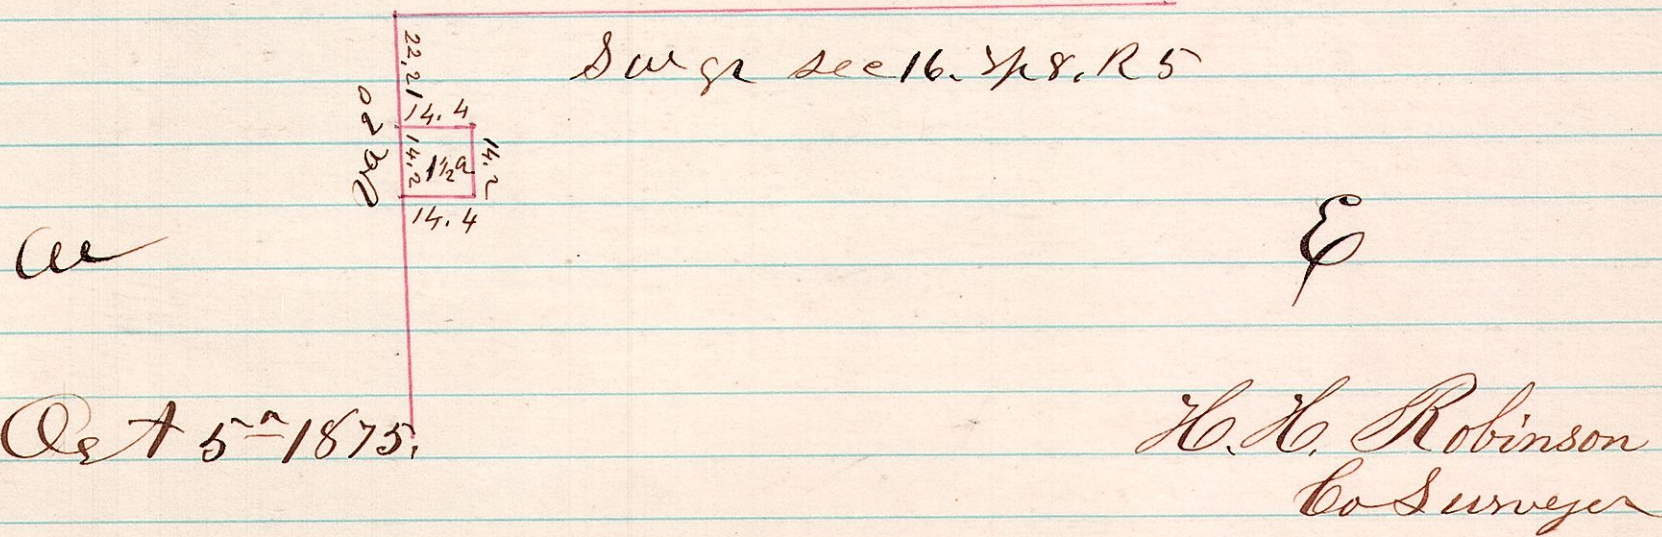 22,21
S W qr sec 16. Tp 8. R 5
14.4
Va 20
14.2
1½ a
14.2
14.4
W
E
Oct 5th 1875.
H. H. Robinson
Co Surveyor